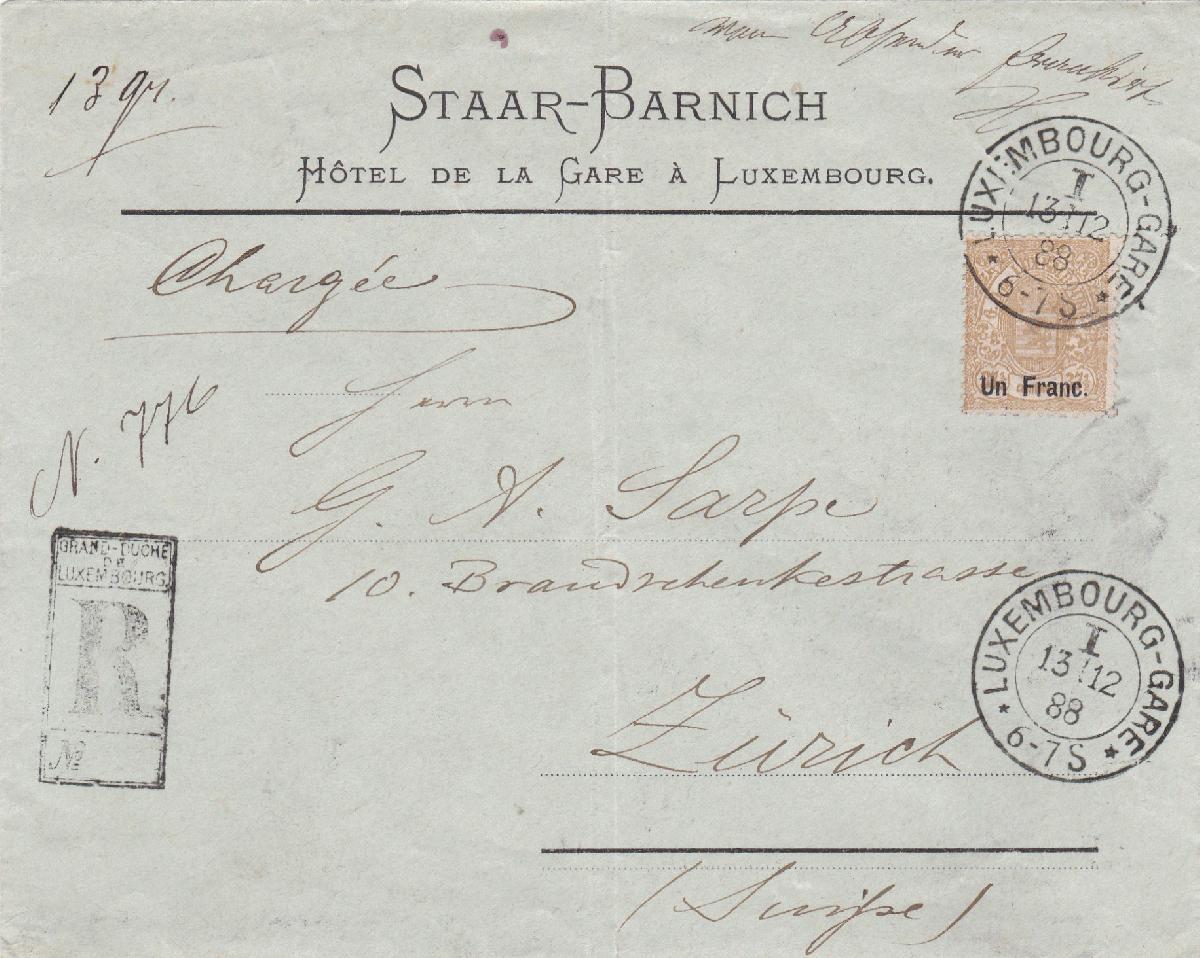 13 gr.
STAAR-BARNICH
HÔTEL DE LA GARE À LUXEMBOURG.
LUXEMBOURG-GARE
I
13 12
88
* 6-7 S *
Un Franc.
Chargée
Herrn
N. 776
G. A. Sarpe
10. Brandschenkestrasse
GRAND-DUCHÉ
DE
LUXEMBOURG
R
No
LUXEMBOURG-GARE
I
13 12
88
* 6-7 S *
Zürich
(Suisse)